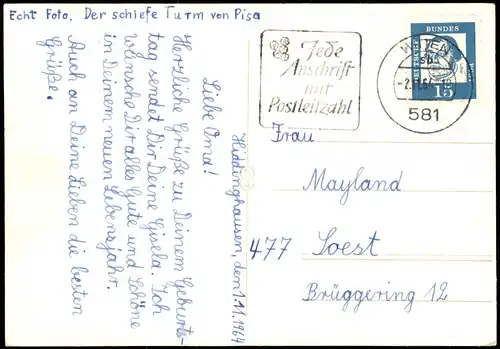 Echt Foto. Der schiefe Turm von Pisa
Hiddinghausen, den 1.11.1964
Liebe Oma!
Herzliche Grüße zu Deinem Geburts-
tag sendet Dir Deine Gisela. Ich
wünsche Dir alles Gute und Schöne
in Deinem neuen Lebensjahr.
Auch an Deine Lieben die besten
Grüße.
Jede
Anschrift
mit
Postleitzahl
581
DEUTSCHE BUNDES
15
Frau
Mayland
477 Soest
Brüggering 12